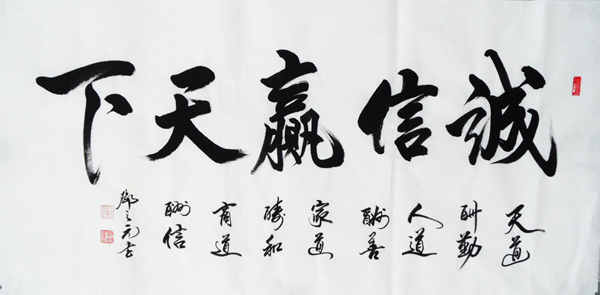 誠信贏天下
天道
酬勤
人道
酬善
家道
酬和
商道
酬信